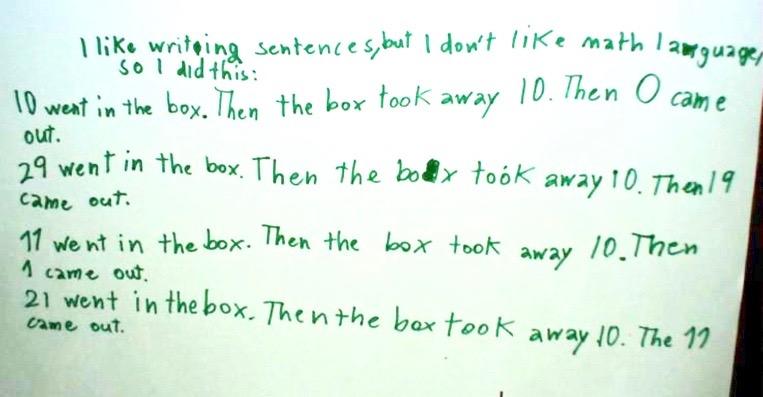 I like writing sentences, but I don't like math language,
so I did this:
10 went in the box. Then the box took away 10. Then 0 came
out.
29 went in the box. Then the box took away 10. Then 19
came out.
11 went in the box. Then the box took away 10. Then
1 came out.
21 went in the box. Then the box took away 10. The 11
came out.